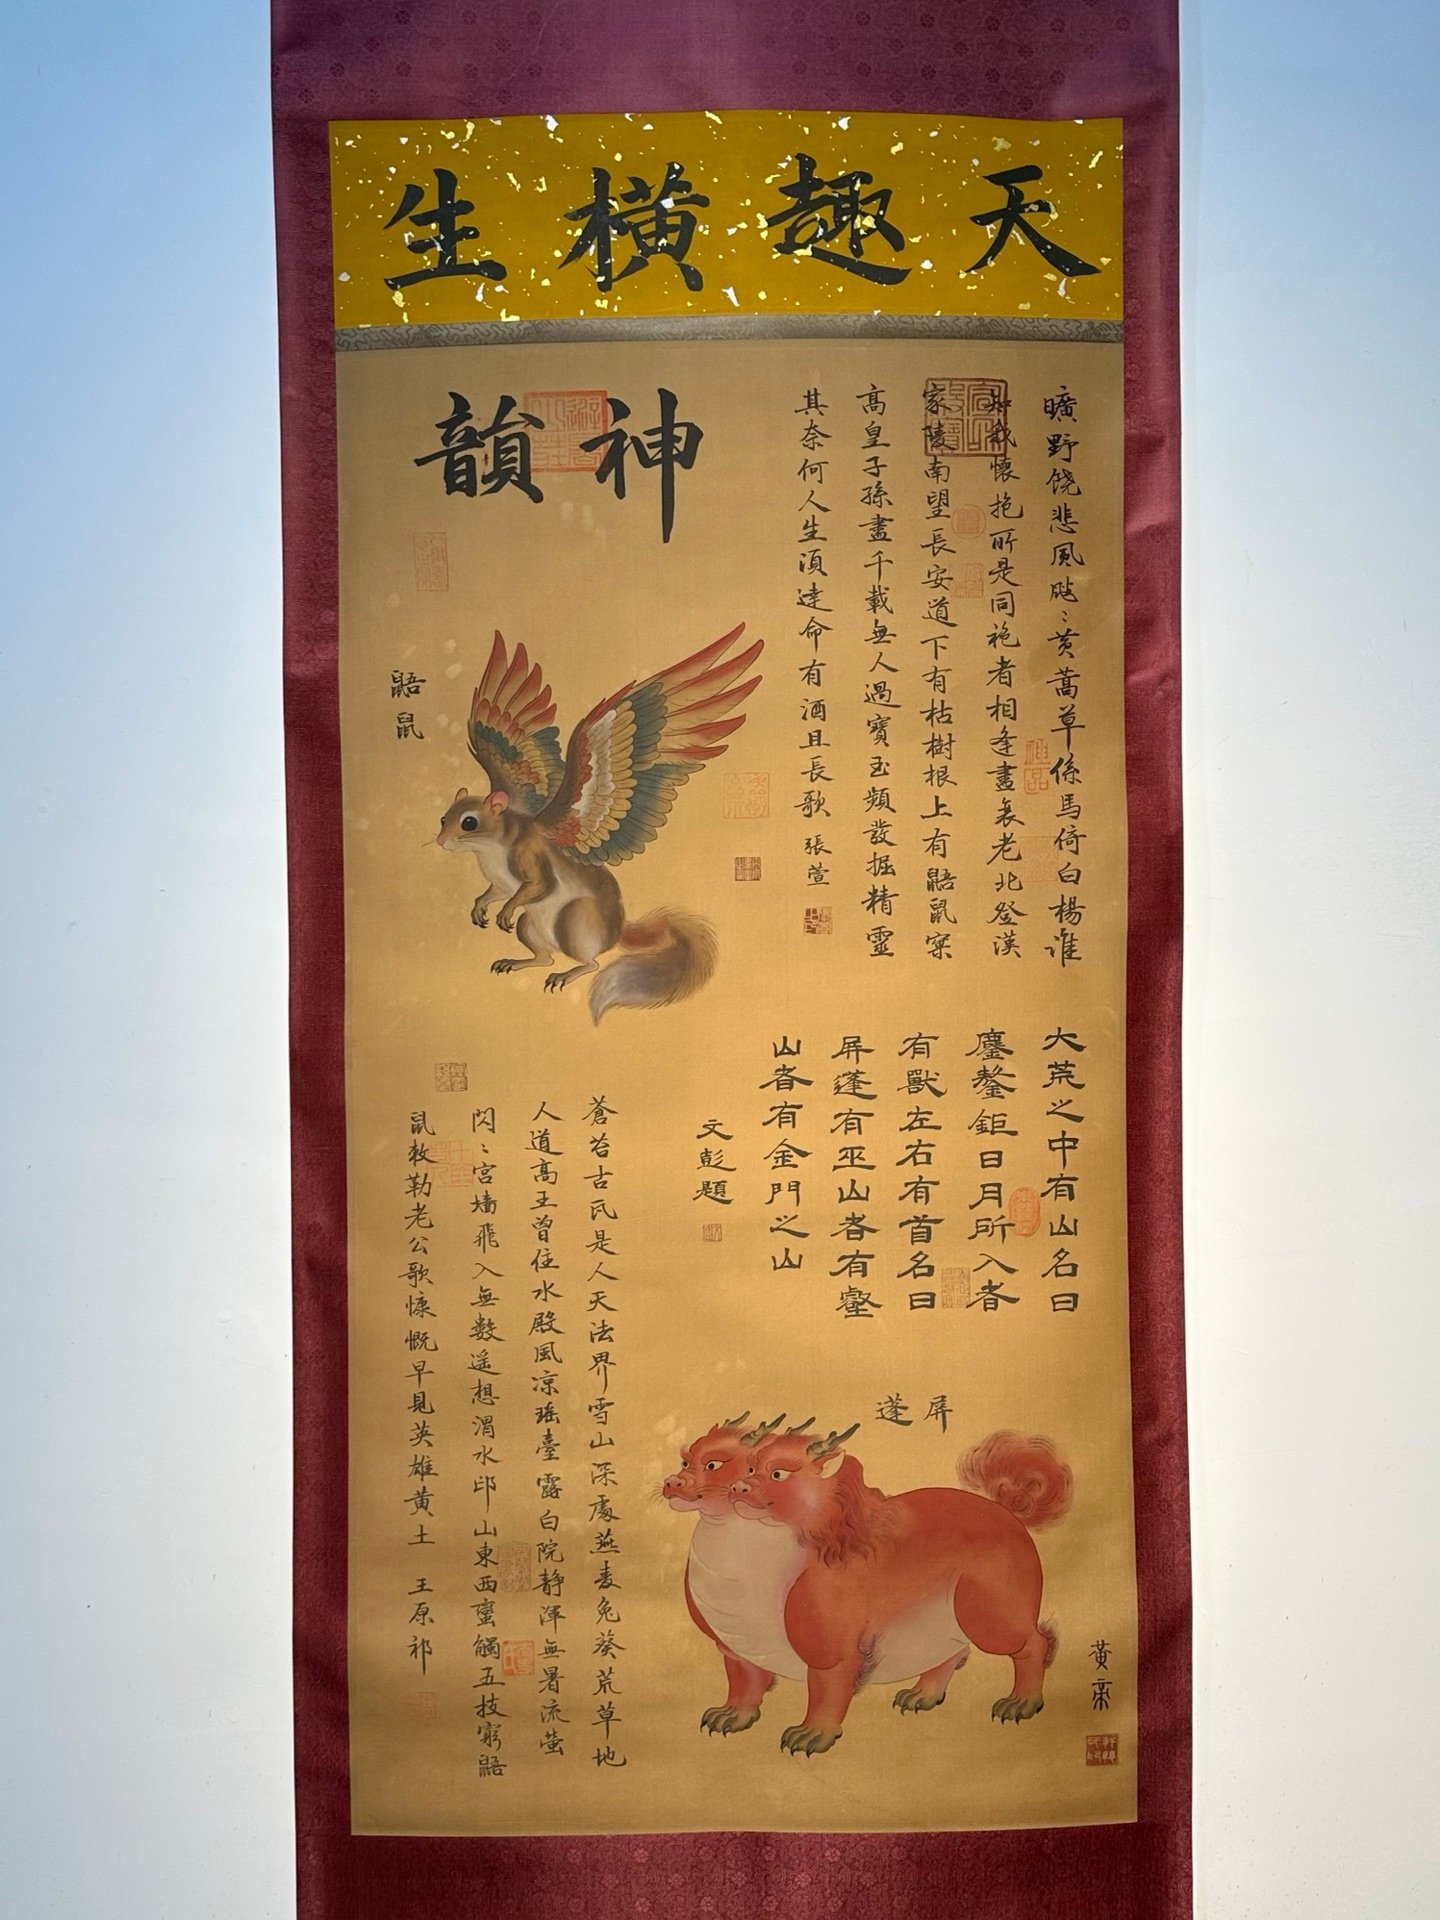 天趣橫生
神韻
曠野饶悲風颼〻黄蒿草係馬倚白楊谁
知我懷抱所是同袍者相逢盡衰老北登漢
家陵南望長安道下有枯樹根上有鼯鼠窠
高皇子孫盡千載無人過寶玉頻發掘精靈
其奈何人生須達命有酒且長歌 張萱
鼯鼠
大荒之中有山名曰
鏖鏊鉅日月所入者
有獸左右有首名曰
屏蓬有巫山者有壑
山者有金門之山
文彭題
蒼苔古瓦是人天法界雪山深處燕麦兔葵荒草地
人道高王曾住水殿風凉瑤臺露白院静渾無暑流萤
閃〻宫墙飛入無数遥想渭水邙山東西蛮觸五技窮鼯
鼠敕勒老公歌慷慨早見英雄黄土 王原祁
屏蓬
黄帝